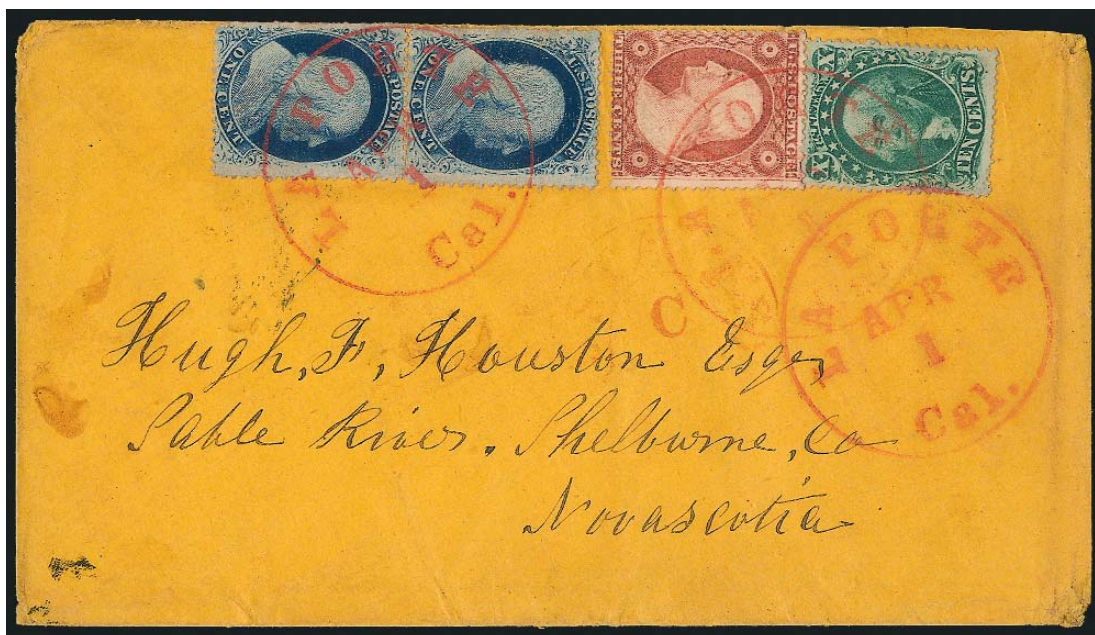 U.S. POSTAGE
ONE CENT
U.S. POSTAGE
ONE CENT
U.S. POSTAGE
THREE CENTS
X U.S. POSTAGE X
TEN CENTS
LA PORTE
APR
1
Cal.
LA PORTE
APR
1
Cal.
Hugh, F, Houston Esqr,
Sable River. Shelburne, Co
Novascotia